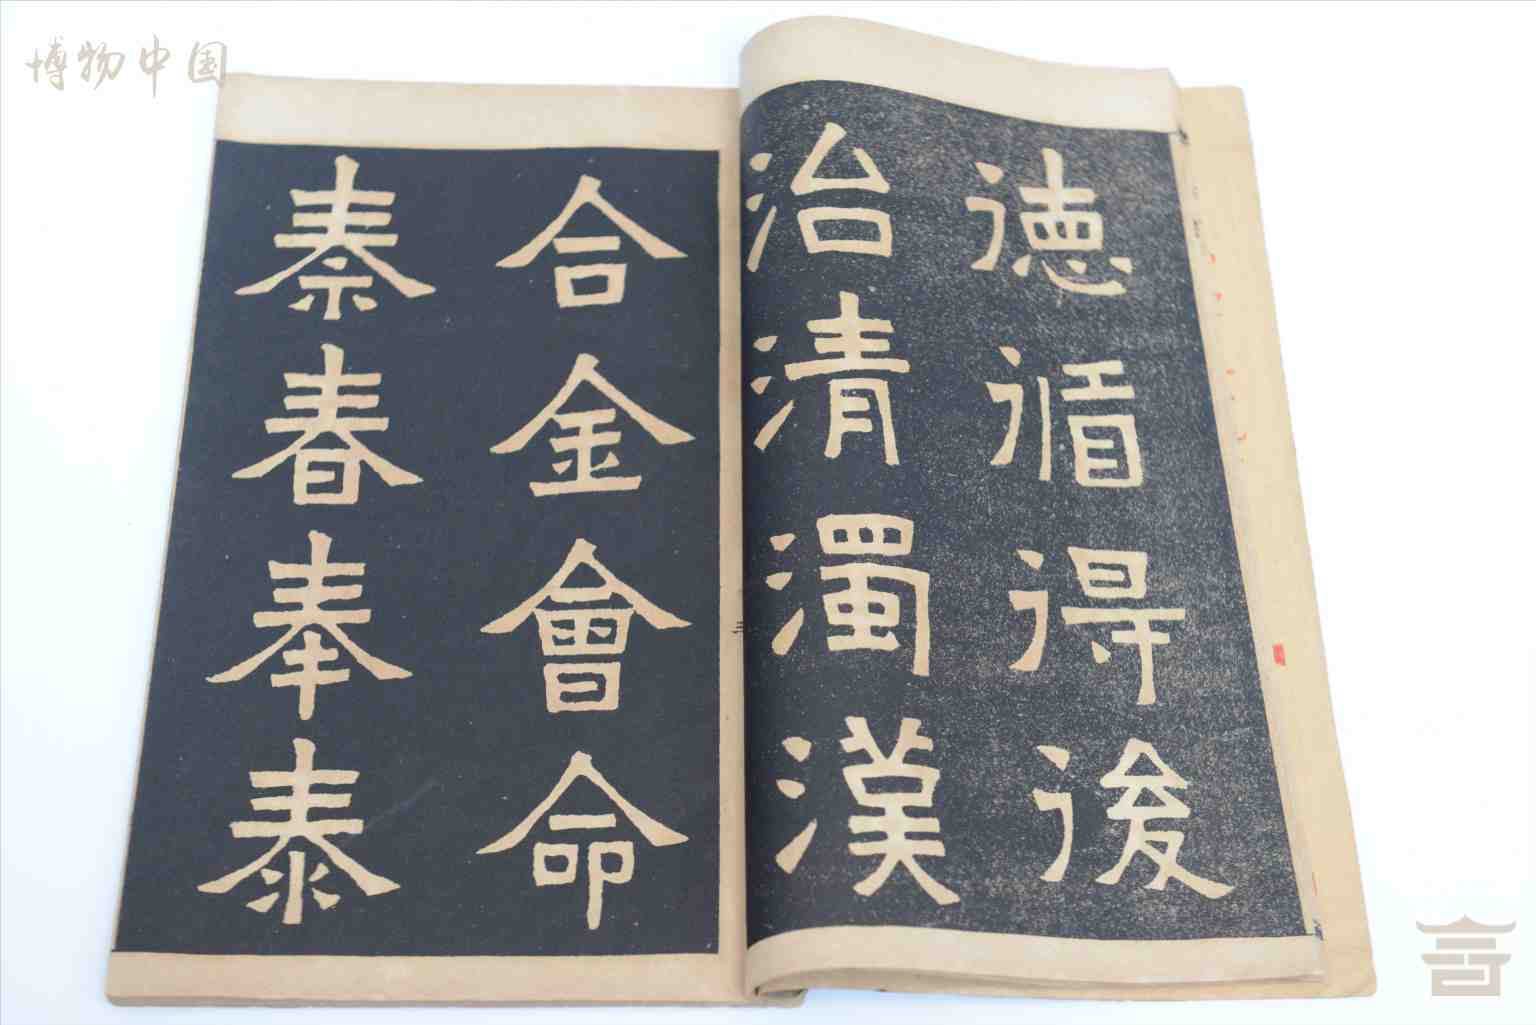 博物中国
德循得後
治清濁漢
合金會命
秦春奉泰